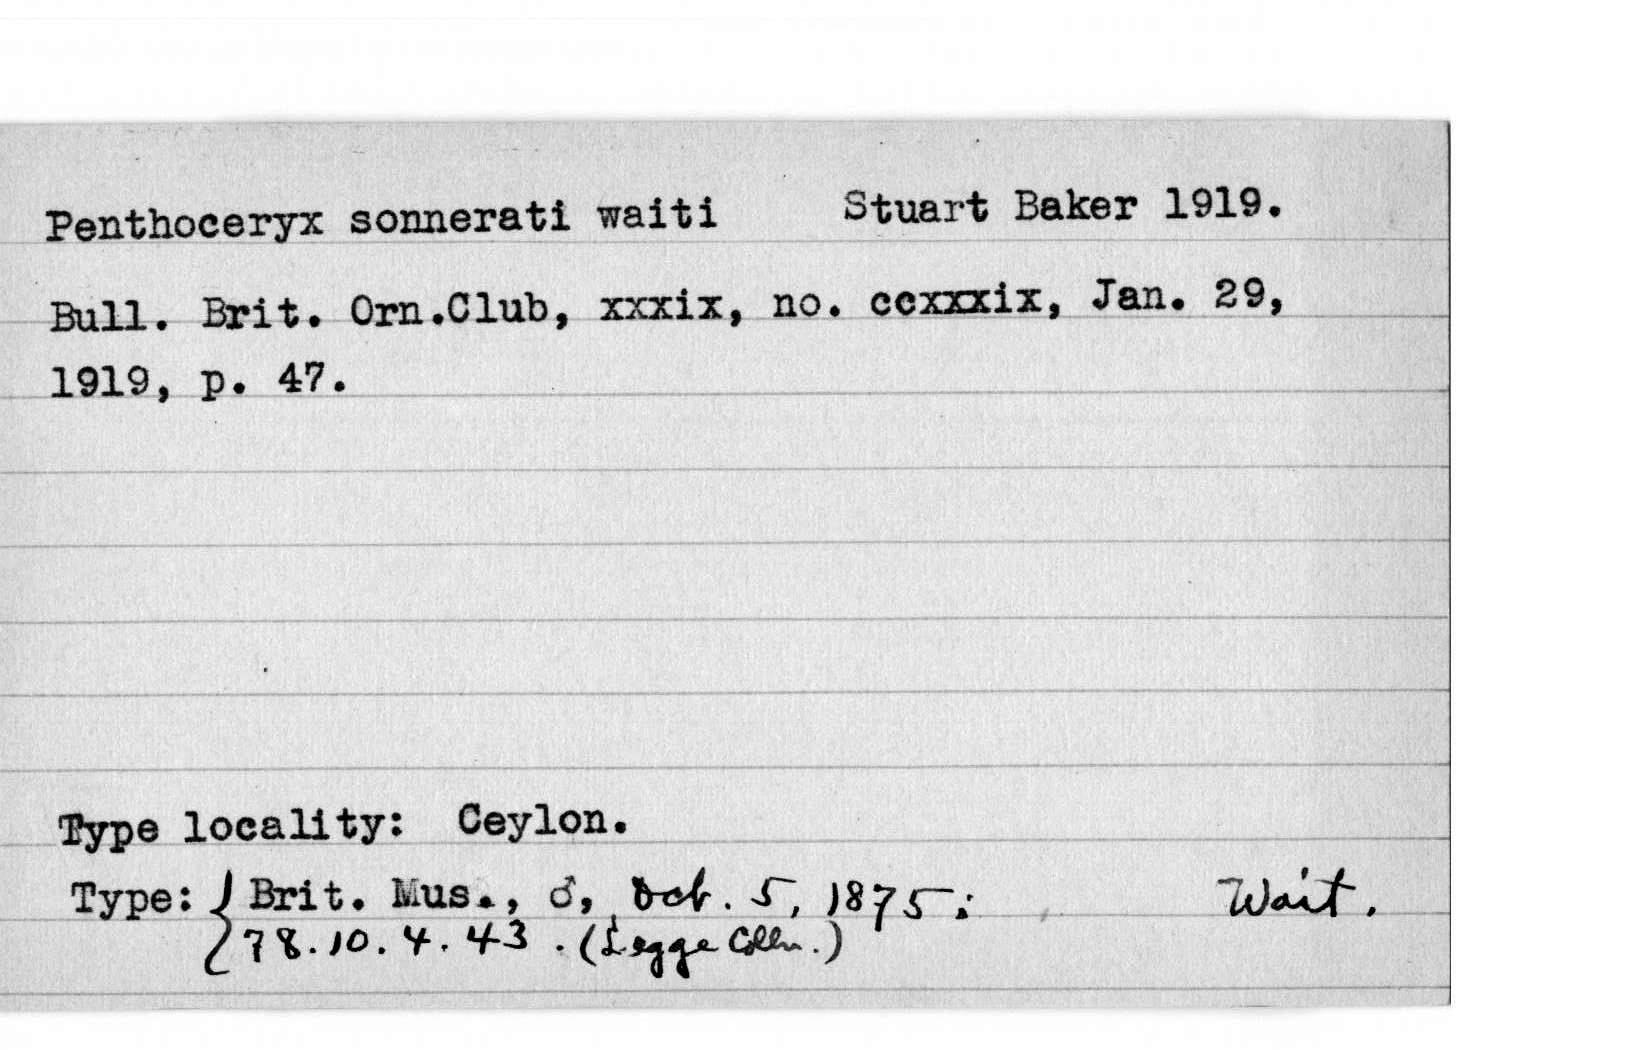 Penthoceryx sonnerati waiti Stuart Baker 1919.
Bull. Brit. Orn.Club, xxxix, no. ccxxxix, Jan. 29,
1919, p. 47.
Type locality: Ceylon.
Type: { Brit. Mus., ♂, Oct. 5, 1875; Wait.
78.10.4.43. (Legge Colln.)